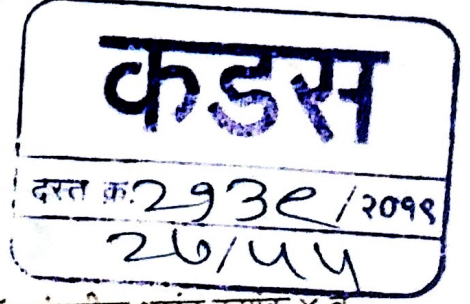 कडस
दस्त क्र. २१३९/२०१९
२७/५५